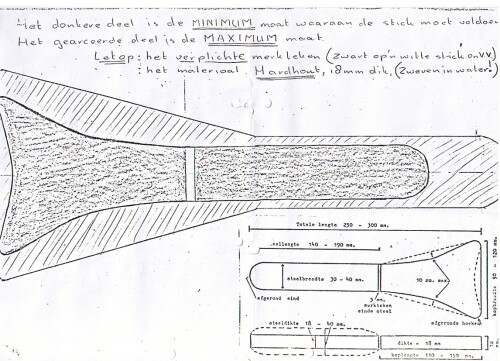 Het donkere deel is de MINIMUM maat waaraan de stick moet voldoen
Het gearceerde deel is de MAXIMUM maat.
Let op: het verplichte merkteken (zwart op'n witte stick o.v.v.)
: het materiaal. Hardhout, 18mm dik, (zweven in water!)
Totale lengte 250 - 300 mm.
steellengte 140 - 190 mm.
steelbreedte 30 - 40 mm.
10 mm. max.
kopbreedte 90 - 120 mm.
afgerond eind
5 mm.
merkteken
einde steel
afgeronde hoeken
steeldikte 18 - 40 mm.
dikte = 18 mm
koplengte 110 - 155 mm.